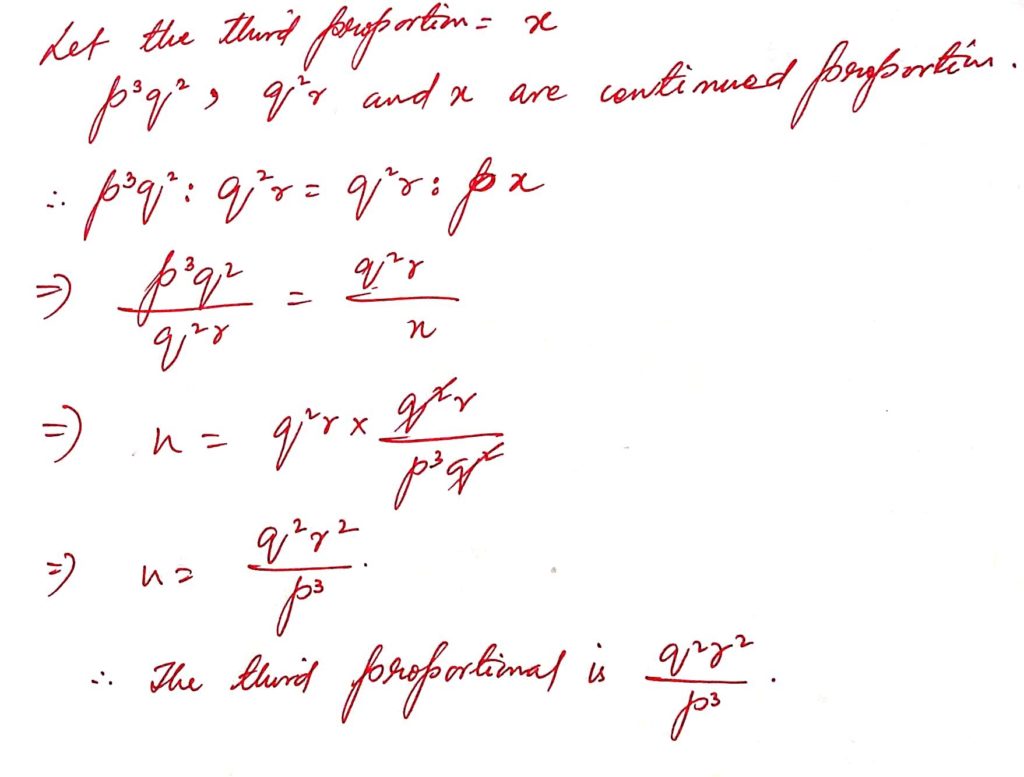 Let the third proportion = x
p³q², q²r and x are continued proportion.
∴ p³q² : q²r = q²r : x
⇒ p³q²/q²r = q²r/x
⇒ x = q²r × q²r/p³q²
⇒ x = q²r²/p³.
∴ The third proportional is q²r²/p³.